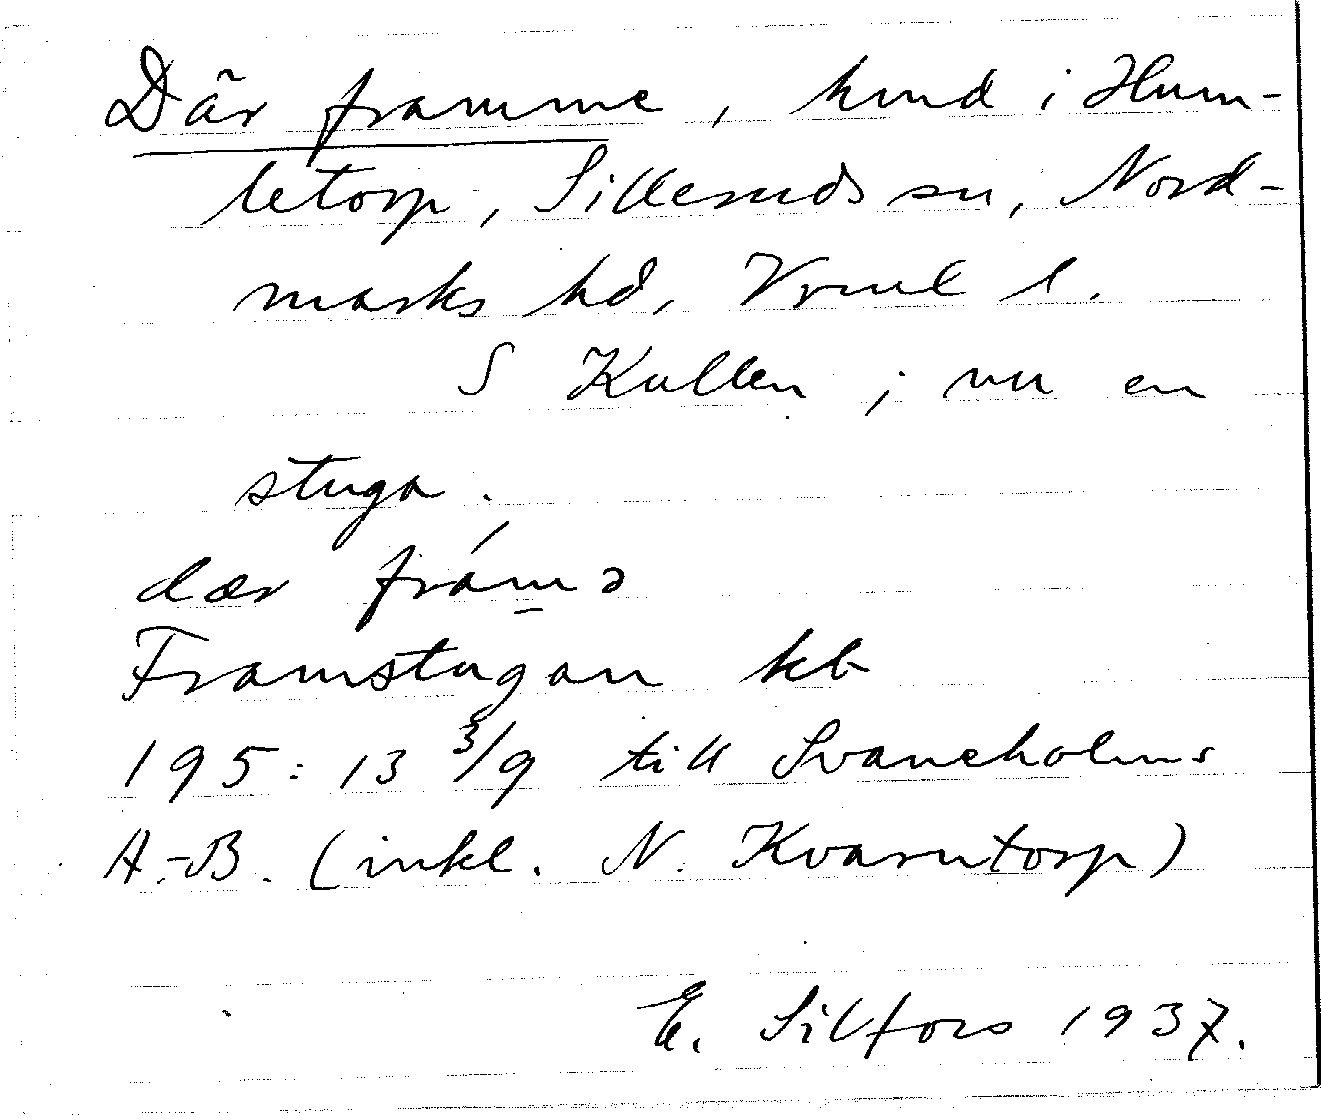 Där framme, hmd i Hum-
letorp, Silleruds sn, Nord-
marks hd, Vrml l.
S Kullen; nu en
stuga.
dær frám̲ə
Framstugan kb
195:13 3/9 till Svaneholms
A.-B. (inkl. N. Kvarntorp)
E. Silfors 1937.